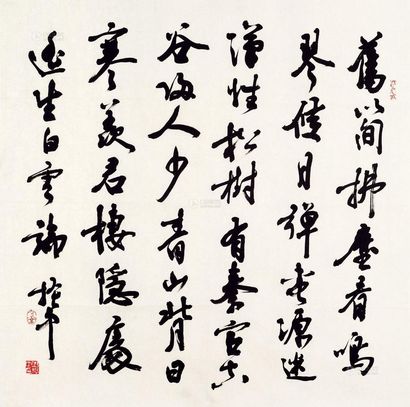 舊簡拂塵看鳴
琴候月彈桃源迷
漢姓松樹有秦官空
谷歸人少青山背日
寒羨君棲隱處
遙望白雲端